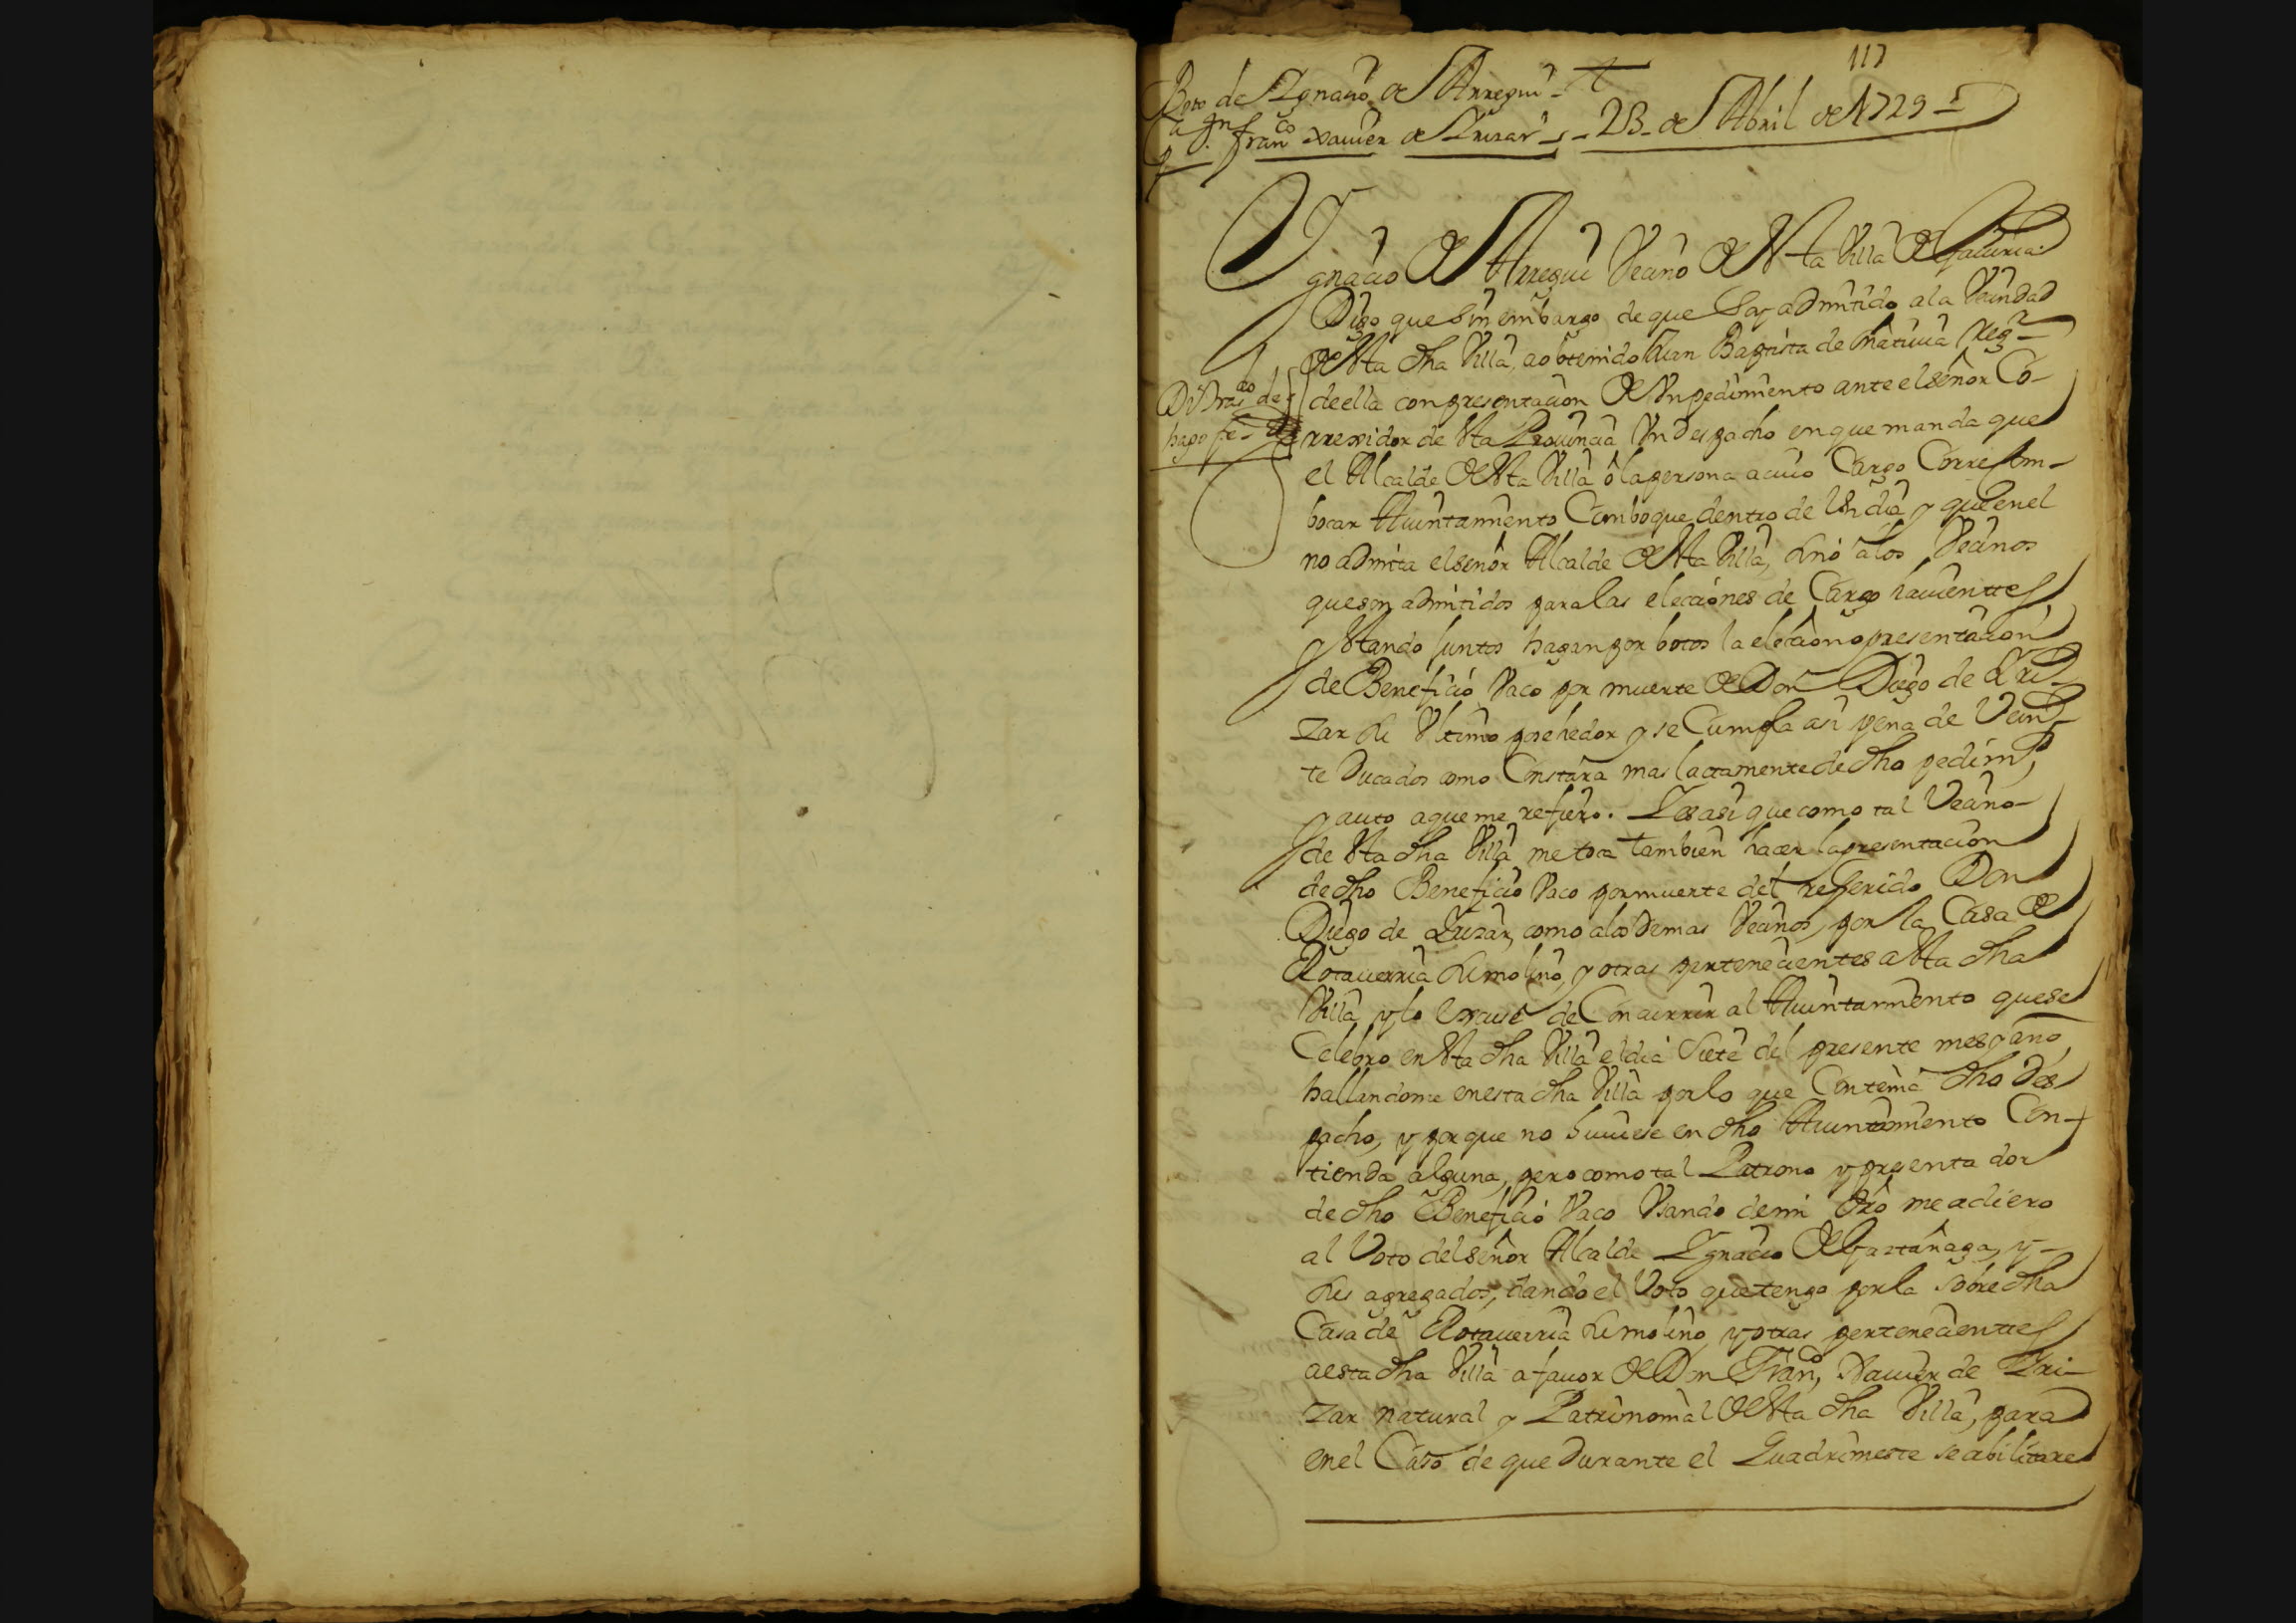 117
Boto de Ygnacio de Arregui
a Dn Franco Xauier de Yrizar - 23 de Abril de 1729
Ygnacio de Arregui Vecino de Esta Villa de Gauiria
Digo que sin embargo de que soy admitido a la Vecindad
de Esta dha Villa, a obtenido Juan Baptista de Regor
de ella con presentacion de Vn pedimiento ante el señor Co-
rrexidor de Esta Prouincia Vn despacho en que manda que
el Alcalde de Esta Villa ô la persona a cuio Cargo Corre Com-
bocar Aiuntamiento Comboque dentro de Vn dia y que en el
no admita el señor Alcalde de Esta Villa, sino â los Vecinos
que son admitidos para las elecciones de Cargo hauientes
y Estando Juntos hagan por botos la eleccion o presentacion
de Beneficio Vaco por muerte de Don Diego de Yri-
zar su Vltimo posehedor y se Cumpla asi pena de Vein-
te Ducados como Constara mas lactamente de dho pedimto
y auto a que me refiero. Y es asi que como tal Vecino
de Esta dha Villa me toca tambien hacer la presentacion
de dho Beneficio Vaco por muerte del refferido Don
Diego de Yrizar, como a los Demas Vecinos, por la Casa de
Rotaeverria su molino, y otras pertenecientes a Esta dha
Villa y lo Escusé de Concurrir al Aiuntamiento que se
Celebro en Esta dha Villa el dia Siete del presente mes y año
hallandome en esta dha Villa por lo que Contenia dho Des
pacho, y porque no huuiese en dho Aiuntamiento Con-
tienda alguna, pero como tal Patrono y presentador
de dho Beneficio Vaco Vsando de mi dro me adiero
al Voto del señor Alcalde Ygnacio de Gaztañaga, y
sus agregados, dando el Voto que tengo por la sobre dha
Casa de su molino y otras pertenecientes
a esta dha Villa a fauor de Dn Franco Xauier de Yri-
zar natural y Patrimonial de Esta dha Villa, para
en el Caso de que durante el Quadrimestre se abilitare
hago fe